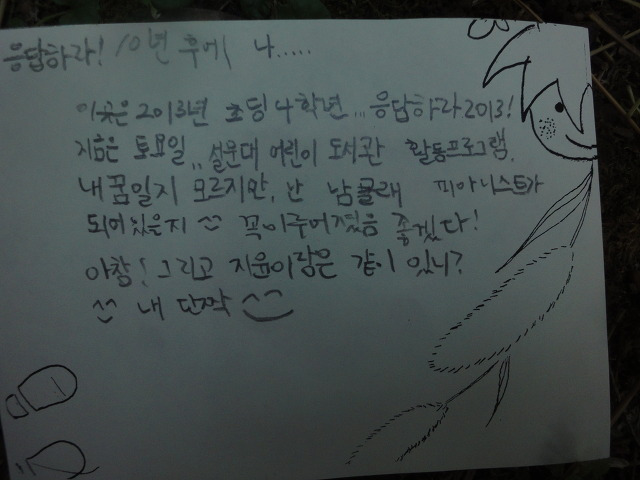 응답하라! 10년 후에 나.....
이곳은 2013년 초딩 4학년... 응답하라 2013!
지금은 토요일,, 설문대 어린이 도서관 활동프로그램.
내꿈일지 모르지만, 난 남몰래 피아니스트가
되어있은지 ^^ 꼭이루어졌음 좋겠다!
아참! 그리고 지윤이랑은 같이 있니?
^^ 내 단짝 ^^